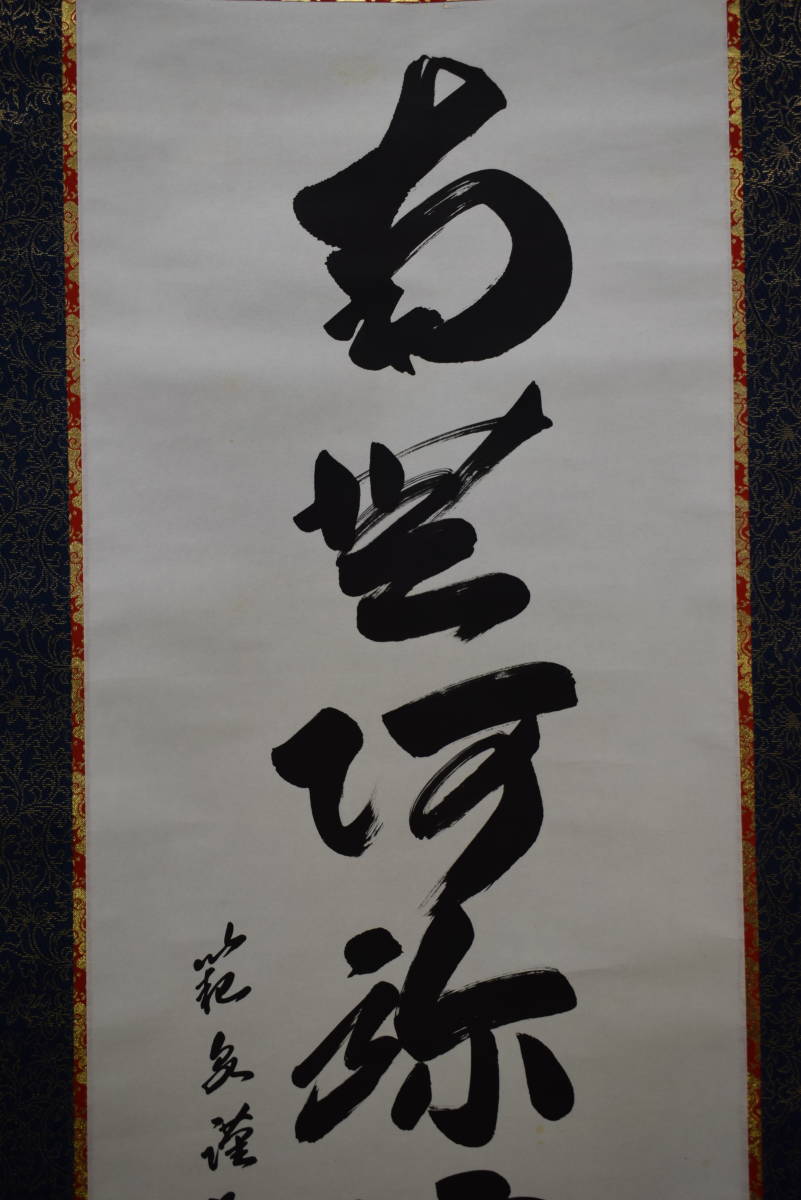 南無阿弥
範文謹